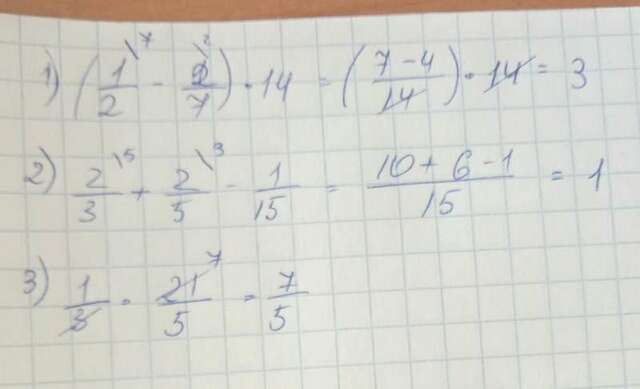 1) (1/2 \7 - 2/7 \2) · 14 = (7-4/14) · 14 = 3
2) 2/3 \5 + 2/5 \3 - 1/15 = 10+6-1/15 = 1
3) 1/3 · 21/5 7 = 7/5